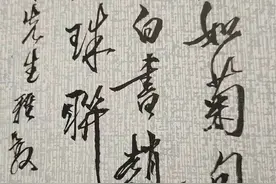 如菊句
白書趙
珠聯
先生雅教